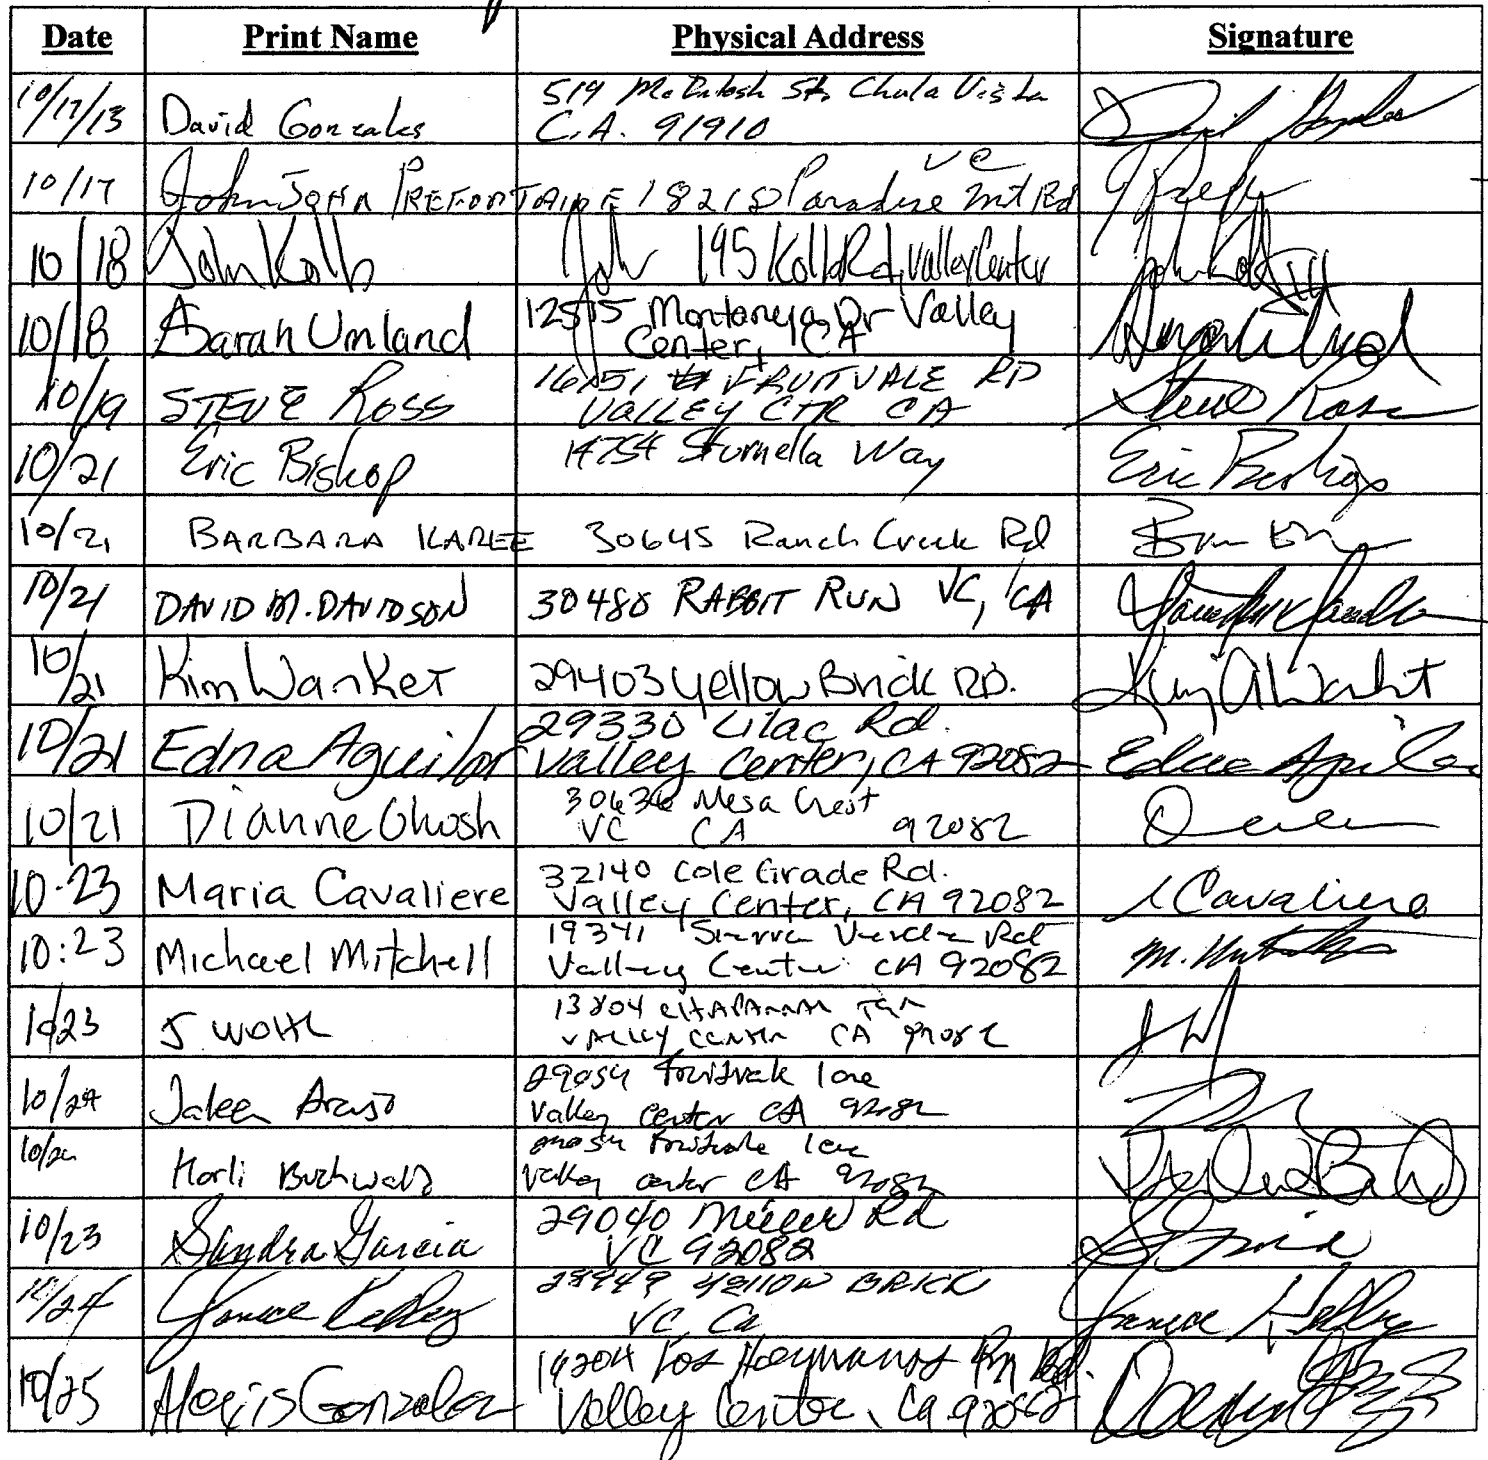 Date Print Name Physical Address Signature
10/17/13 David Gonzales 519 McIntosh St. Chula Vista
C.A. 91910
10/17 John JOHN PREFONTAINE 18218 Paradise Mt Rd
VC
10/18 John Kolb 195 Kolb Rd, Valley Center John Kolb III
10/18 Sarah Umland 12515 Montanya Dr Valley
Center, CA
10/19 STEVE ROSS 16151 FRUITVALE RD Steve Ross
VALLEY CTR CA
10/21 Eric Bishop 14754 Sturnella Way Eric
10/21 BARBARA KAREE 30645 Ranch Creek Rd
10/21 DAVID M. DAVIDSON 30480 RABBIT RUN VC, CA
10/21 Kim Wanket 29403 Yellow Brick RD.
10/21 Edna Aguilar 29330 Lilac Rd. Edna Aguilar
Valley Center, CA 92082
10/21 Dianne Ghosh 30636 Mesa Crest
VC CA 92082
10-23 Maria Cavaliere 32140 Cole Grade Rd. Cavaliere
Valley Center, CA 92082
10:23 Michael Mitchell 19341 Sierra Verde Rd M.
Valley Center CA 92082
10/23 J WOHL 13804 CHAPARRAL TER
VALLEY CENTER CA 92082
10/24 29054 Fruitvale lane
Valley Center CA 92082
10/24 Harli Buchwald Fruitvale lane
Valley center CA 92082
10/23 Sandra Garcia 29040 Miller Rd
VC 92082
10/24 Janice Kelley YELLOW BRICK Janice Kelley
VC Ca
10/25 Alexis Gonzalez
Valley Center, Ca 92082